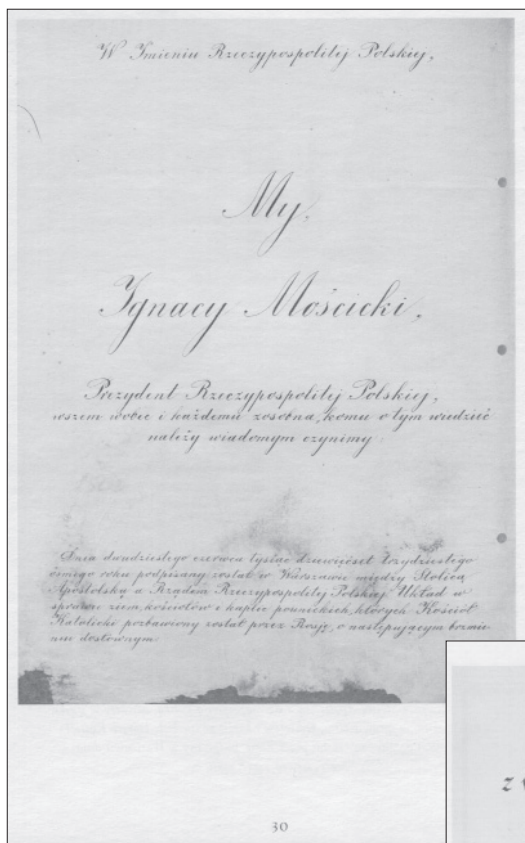 W Imieniu Rzeczypospolitej Polskiej,
My,
Ignacy Mościcki,
Prezydent Rzeczypospolitej Polskiej,
wszem wobec i każdemu zosobna, komu o tym wiedzieć
należy wiadomym czynimy:
Dnia dwudziestego czerwca tysiąc dziewięćset trzydziestego
ósmego roku podpisany został w Warszawie między Stolicą
Apostolską a Rządem Rzeczypospolitej Polskiej Układ w
sprawie ziem, kościołów i kaplic pounickich, których Kościół
Katolicki pozbawiony został przez Rosję, o następującym brzmie-
niu dosłownym:
30
z